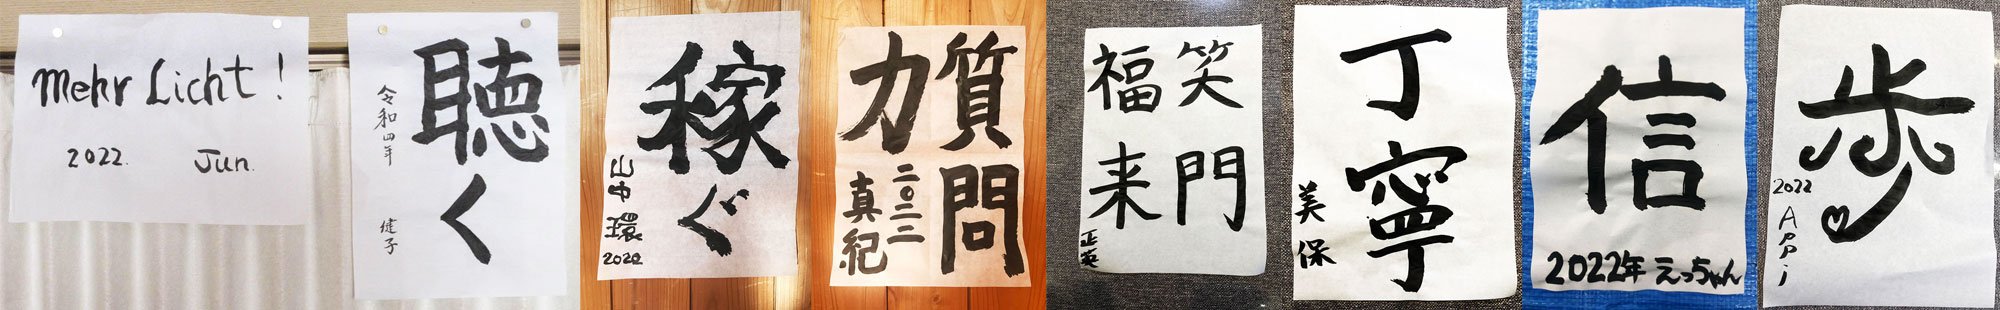 Mehr Licht!
2022.
Jun.
聴く
令和四年
健子
稼ぐ
山中環
2022
質問
力
二〇二二
真紀
笑門
福来
正英
丁寧
美保
信
2022年 えっちゃん
歩
2022
Appi